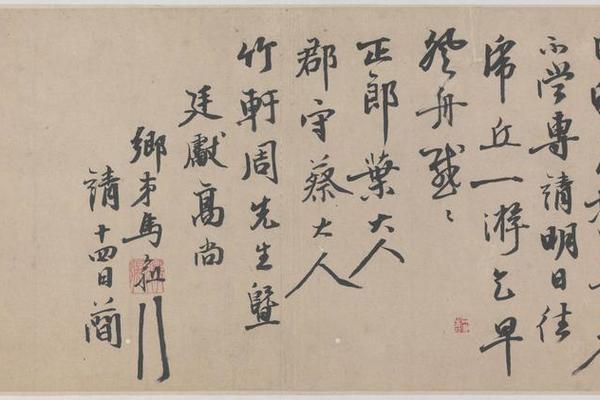 不学專請明日往
虎丘一游乞早
登舟感〻
正郎葉大人
郡守蔡大人
竹軒周先生暨
廷獻高尚
鄉弟馬愈
請十四日簡